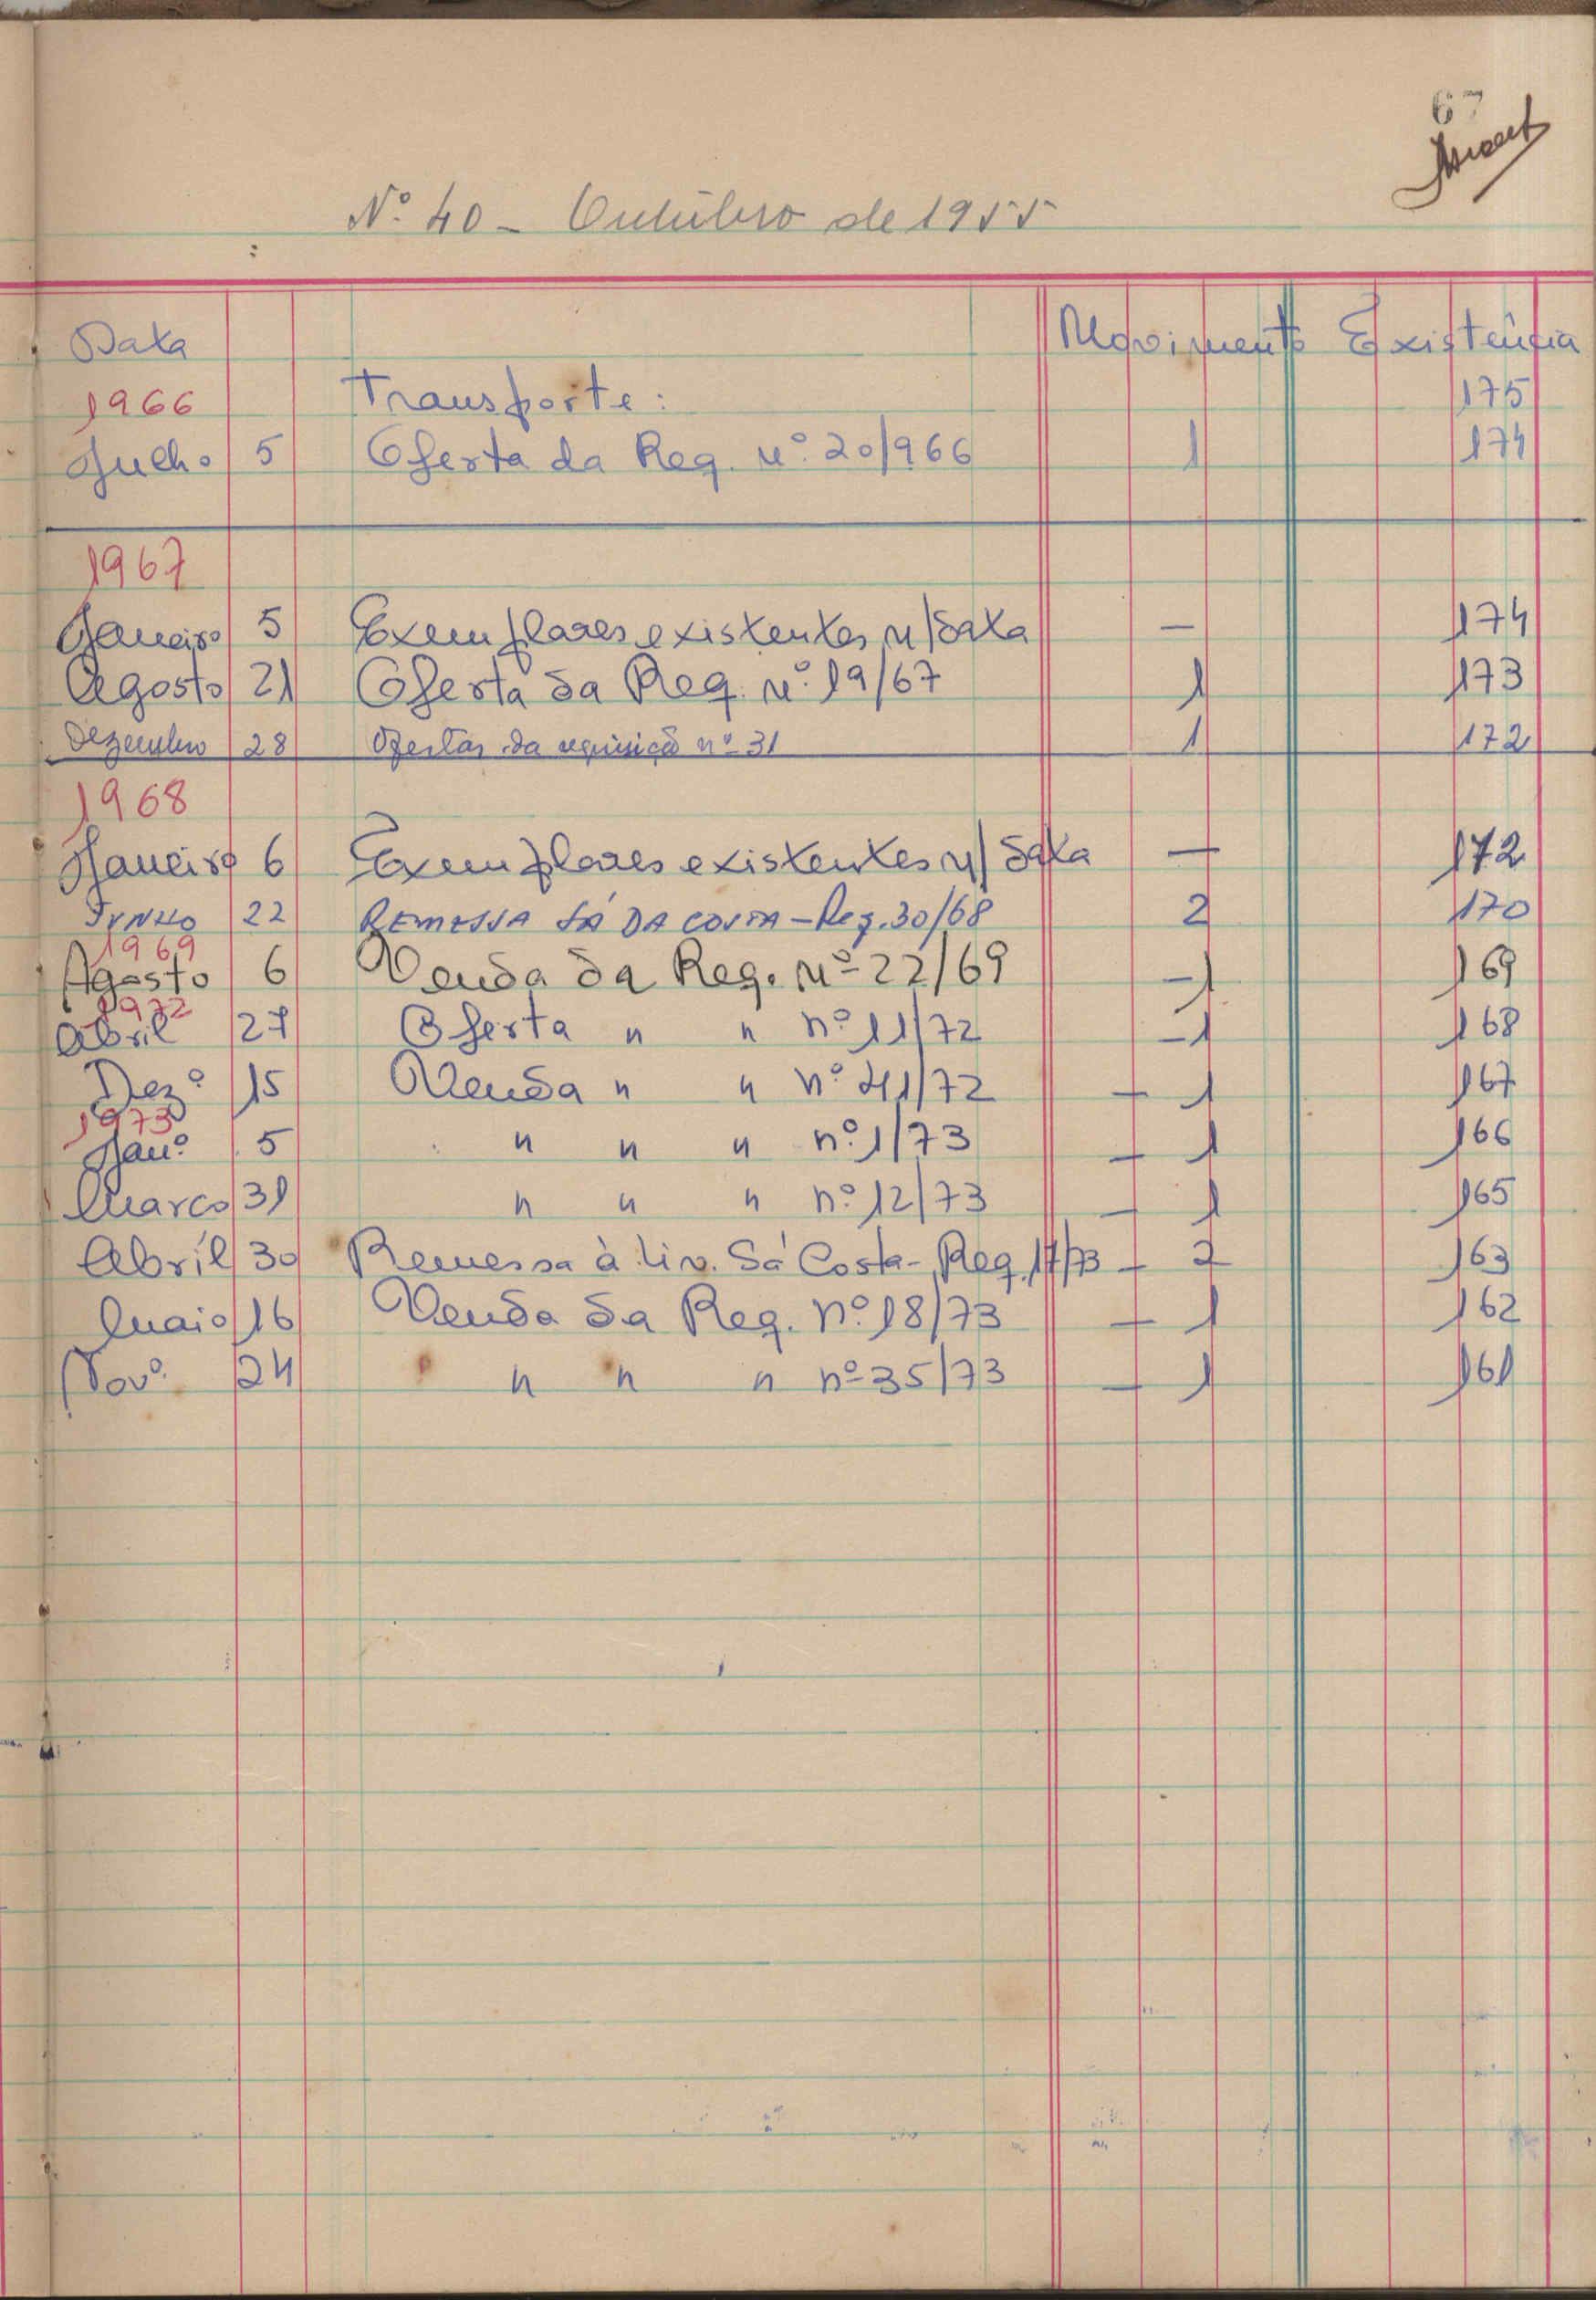 67
Nº 40 - Outubro de 1955
Data Movimento Existência
1966 Transporte: 175
Julho 5 Oferta da Req. nº 20/966 1 174
1967
Janeiro 5 Exemplares existentes n/data — 174
Agosto 21 Oferta da Req. nº 19/67 1 173
Dezembro 28 Ofertas da requisição nº 31 1 172
1968
Janeiro 6 Exemplares existentes n/data — 172
JUNHO 22 REMESSA SÁ DA COSTA - Req. 30/68 2 170
1969
Agosto 6 Venda da Req. nº 22/69 - 1 169
1972
Abril 27 Oferta " " nº 11/72 - 1 168
Dezº 15 Venda " " nº 41/72 - 1 167
1973
Janº 5 " " " nº 1/73 - 1 166
Março 31 " " " nº 12/73 - 1 165
Abríl 30 Remessa à Liv. Sá Costa - Req. 17/73 - 2 163
Maio 16 Venda da Req. nº 18/73 - 1 162
Novº 24 " " " nº 35/73 - 1 161